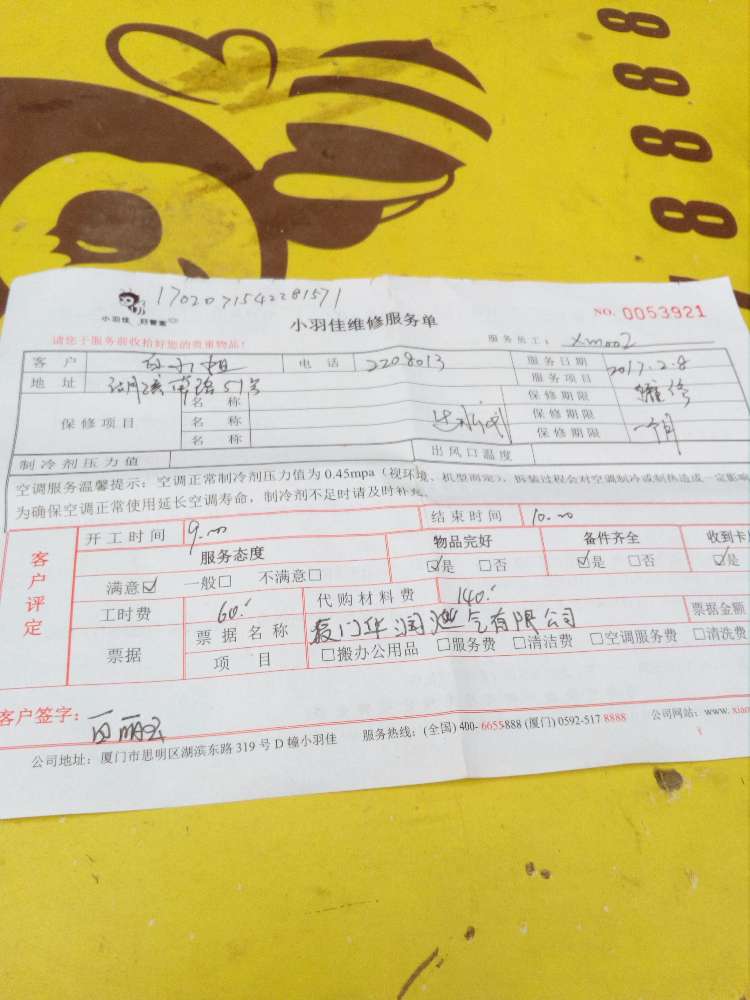 8
8
8
8
8
1702071542281571
小羽佳 好管家
小羽佳维修服务单
NO. 0053921
请您于服务前收拾好您的贵重物品!
服务员工: xm002
客户 白小姐 电话 2208013 服务日期 2017.2.8
地址 湖滨南路51号 服务项目 维修
保修项目 名称 保修期限
名称 保修期限 一个月
名称 保修期限
制冷剂压力值 出风口温度
空调服务温馨提示:空调正常制冷剂压力值为 0.45mpa(视环境、机型而定)。拆装过程会对空调制冷或制热造成一定影响
为确保空调正常使用延长空调寿命,制冷剂不足时请及时补充。
客户评定
开工时间 9.00 结束时间 10.00
服务态度 物品完好 备件齐全 收到卡
满意☑ 一般□ 不满意□ ☑是 □否 ☑是 □否 ☑是
工时费 60. 代购材料费 140.
票据 票据名称 厦门华润燃气有限公司 票据金额
项目 □搬办公用品 □服务费 □清洁费 □空调服务费 □清洗费
客户签字:白丽云
公司地址:厦门市思明区湖滨东路 319 号 D 幢小羽佳 服务热线:(全国) 400-6655888 (厦门) 0592-517 8888 公司网站:www.xiao